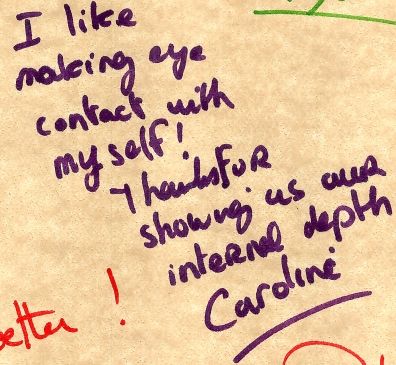 I like
making eye
contact with
myself!
Thanks for
showing us our
internal depth
Caroline
better !